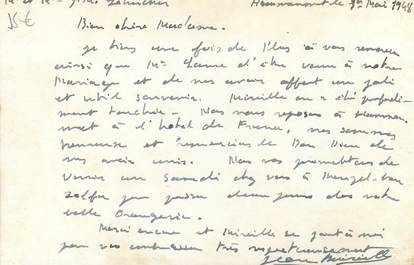 Mr et Mme Gilles
Hammamet le 9 Mai 1948
Bien chère Madame.
Je tiens une fois de plus à vous remercier
ainsi que Mr d'être venu à notre
Mariage et de nous avoir offert un joli
et utile souvenir. Mireille en a été profondé-
ment touchée. Nous nous reposons à Hamma-
met à l'hôtel de France, nous sommes
heureux et remercions le Bon Dieu de
nous avoir unis. Nous vous promettons de
venir un samedi chez vous à Menzel-bou
zelfa pour passer deux jours dans votre
belle Orangerie.
Merci encore et Mireille se joint à moi
pour vous embrasser très respectueusement
Jean Mireille